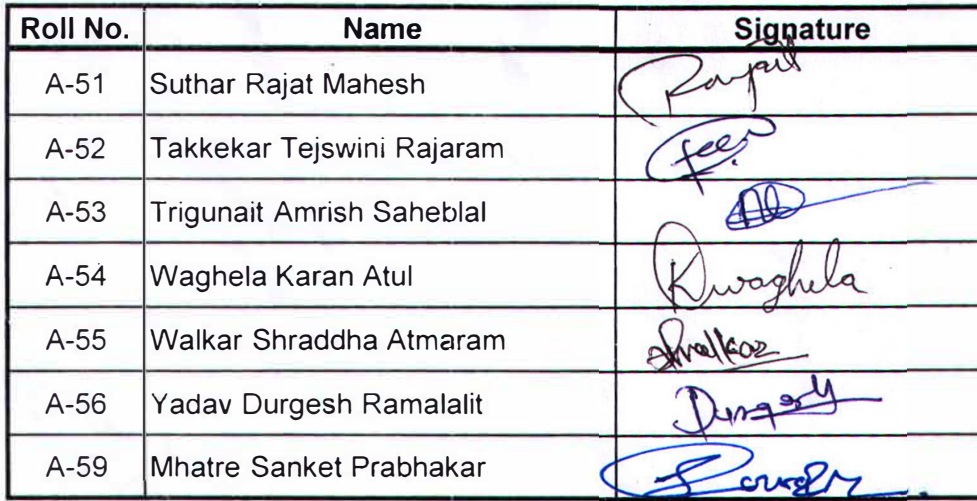 Roll No. Name Signature
A-51 Suthar Rajat Mahesh
A-52 Takkekar Tejswini Rajaram
A-53 Trigunait Amrish Saheblal
A-54 Waghela Karan Atul Kwaghela
A-55 Walkar Shraddha Atmaram
A-56 Yadav Durgesh Ramalalit Durgesh
A-59 Mhatre Sanket Prabhakar